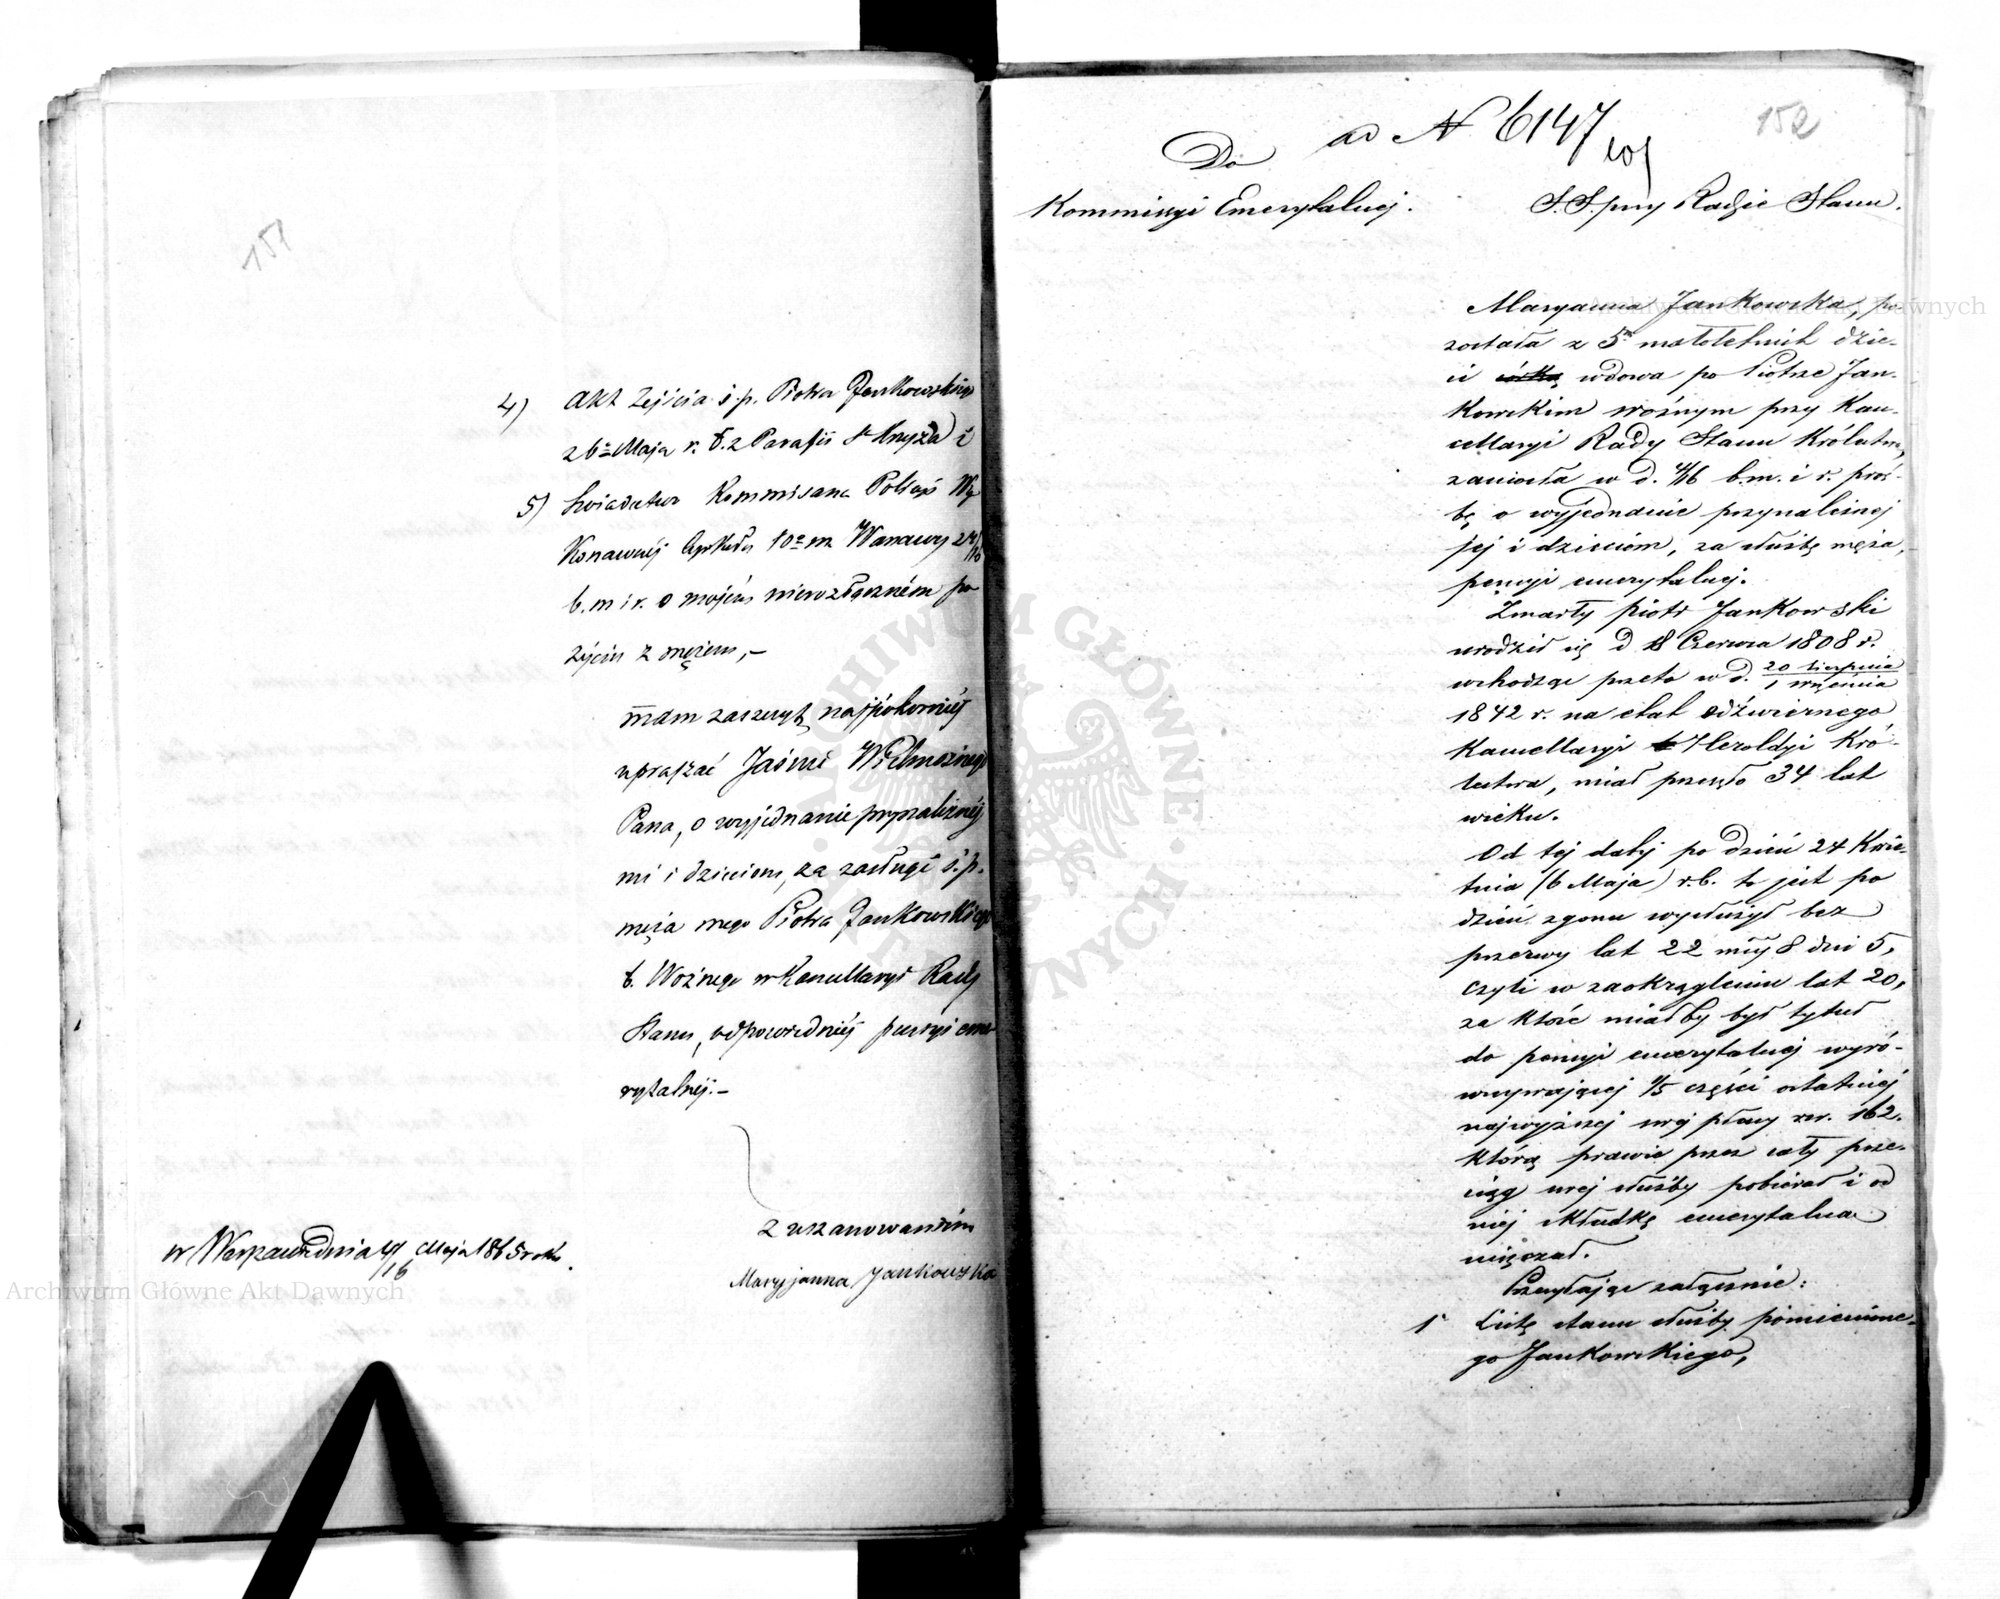 151
4) Akt Zejścia ś.p. Piotra Jankowskiego
z 6go Maja r. b. z Parafii Sgo Krzyża i
5) Świadectwo Kommisarza Policyi Wy
konawczej Cyrkułu 10go m. Warszawy z 4/16
b. m i r. o mojém nierozłączném po
życiu z mężem,—
mam zaszczyt najpokorniéj
upraszać Jaśnie Wielmożnego
Pana, o wyjednanie przynależnéj
mi i dzieciom, za zasługi ś.p.
męża mego Piotra Jankowskiego
b. Woźnego w Kancellaryi Rady
Stanu, odpowiedniéj pensyi eme
rytalnéj.—
Z uszanowaniem
Maryjanna Jankowska
w Warszawie dnia 4/16 Maja 1865 roku.
152
ad N 6147/65
Do
Kommissyi Emerytalnej.
S. S. przy Radzie Stanu.
Maryanna Jankowska, po
została z 5m małoletnich dzie-
ci wdowa po Piotrze Jan-
kowskim woźnym przy Kan-
cellaryi Rady Stanu Królestwa,
zaniosła w d. 4/16 b.m. i r. proś-
bę o wyjednanie przynależnej
jej i dzieciom, za służbę męża,
pensyi emerytalnej.
Zmarły Piotr Jankowski
urodził się d 18 Czerwca 1808 r.
wchodząc przeto w d. 20 sierpnia / 1 września
1842 r. na etat odźwiernego
Kancellaryi Heroldyi Kró-
lestwa, miał przeszło 34 lat
wieku.
Od tej daty po dzień 24 Kwie-
tnia (6 Maja) r.b. to jest po
dzień zgonu wysłużył bez
przerwy lat 22 mcy 8 dni 5,
czyli w zaokrągleniu lat 20,
za które miałby był tytuł
do pensyi emerytalnej wyró-
wnywającej 1/5 części ostatniéj
najwyższej swej płacy rsr. 162.
którą prawie przez cały prze-
ciąg swej służby pobierał i od
niej składkę emerytalną
uiszczał.
Przesyłając załącznie:
1 Listę stanu służby pomienione-
go Jankowskiego,
Archiwum Główne Akt Dawnych
Archiwum Główne Akt Dawnych
ARCHIWUM GŁÓWNE AKT DAWNYCH